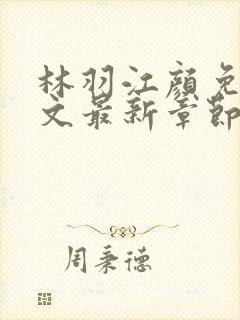 林羽江颜免
文最新章节
周秉德